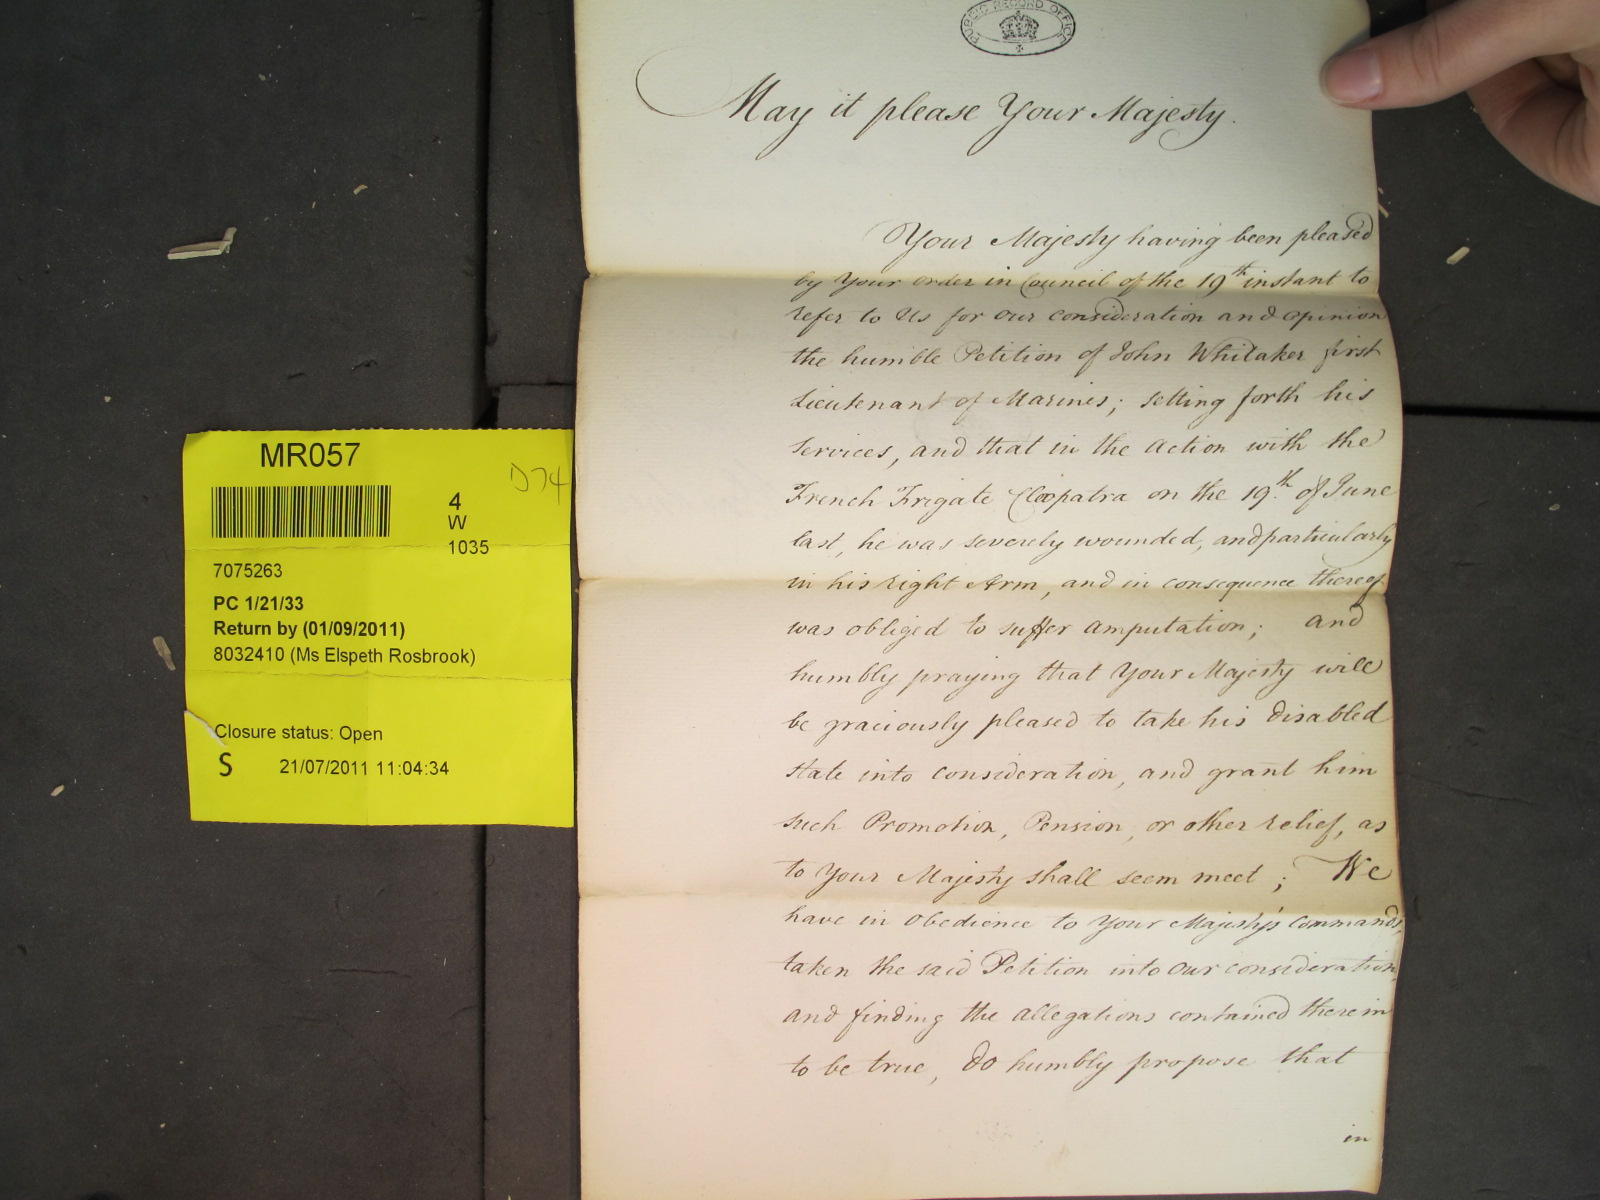 PUBLIC RECORD OFFICE
May it please Your Majesty.
Your Majesty having been pleased
by Your order in Council of the 19th instant to
refer to Us for our consideration and opinion
the humble Petition of John Whitaker first
Lieutenant of Marines; setting forth his
Services, and that in the Action with the
French Frigate Cleopatra on the 19th. of June
last, he was severely wounded, and particularly
in his right Arm, and in consequence thereof
was obliged to suffer amputation; and
humbly praying that Your Majesty will
be graciously pleased to take his disabled
state into consideration, and grant him
such Promotion, Pension, or other relief, as
to Your Majesty shall seem meet; We
have in Obedience to Your Majesty's Commands,
taken the said Petition into Our consideration,
and finding the allegations contained therein
to be true, do humbly propose that
in
MR057
D74
4
W
1035
7075263
PC 1/21/33
Return by (01/09/2011)
8032410 (Ms Elspeth Rosbrook)
Closure status: Open
S 21/07/2011 11:04:34